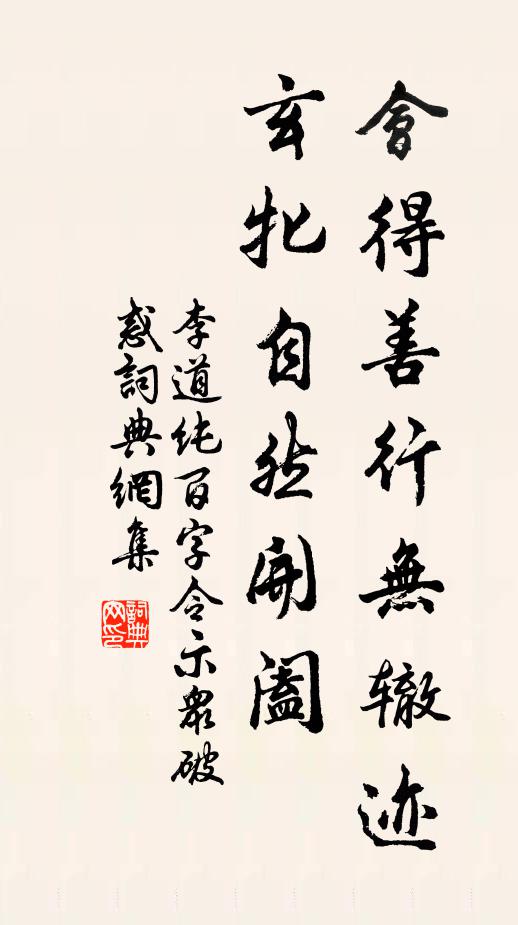 會得善行無辙迹
玄牝自然開闔
李道纯百字令示眾破
惑詞典網集
詞典网印